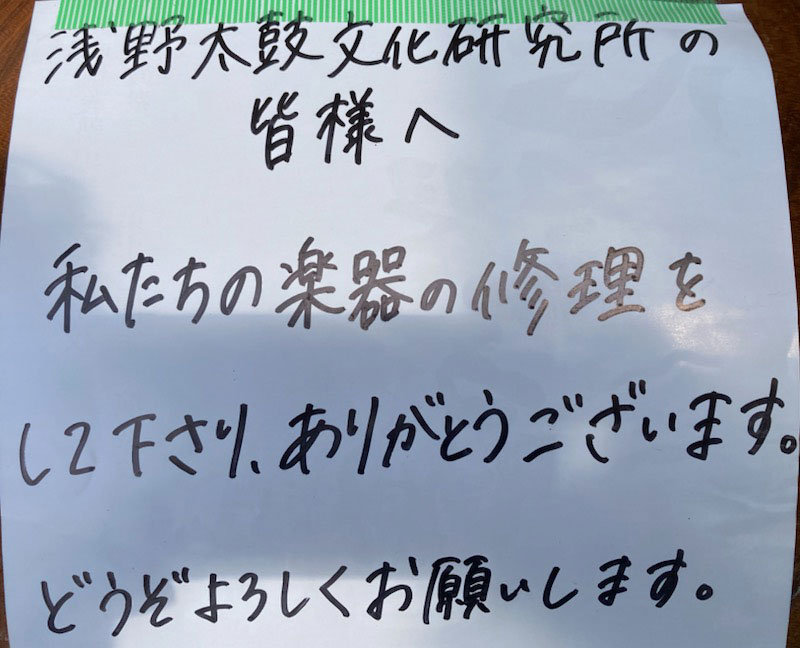 浅野太鼓文化研究所の
皆様へ
私たちの楽器の修理を
して下さり、ありがとうございます。
どうぞよろしくお願いします。